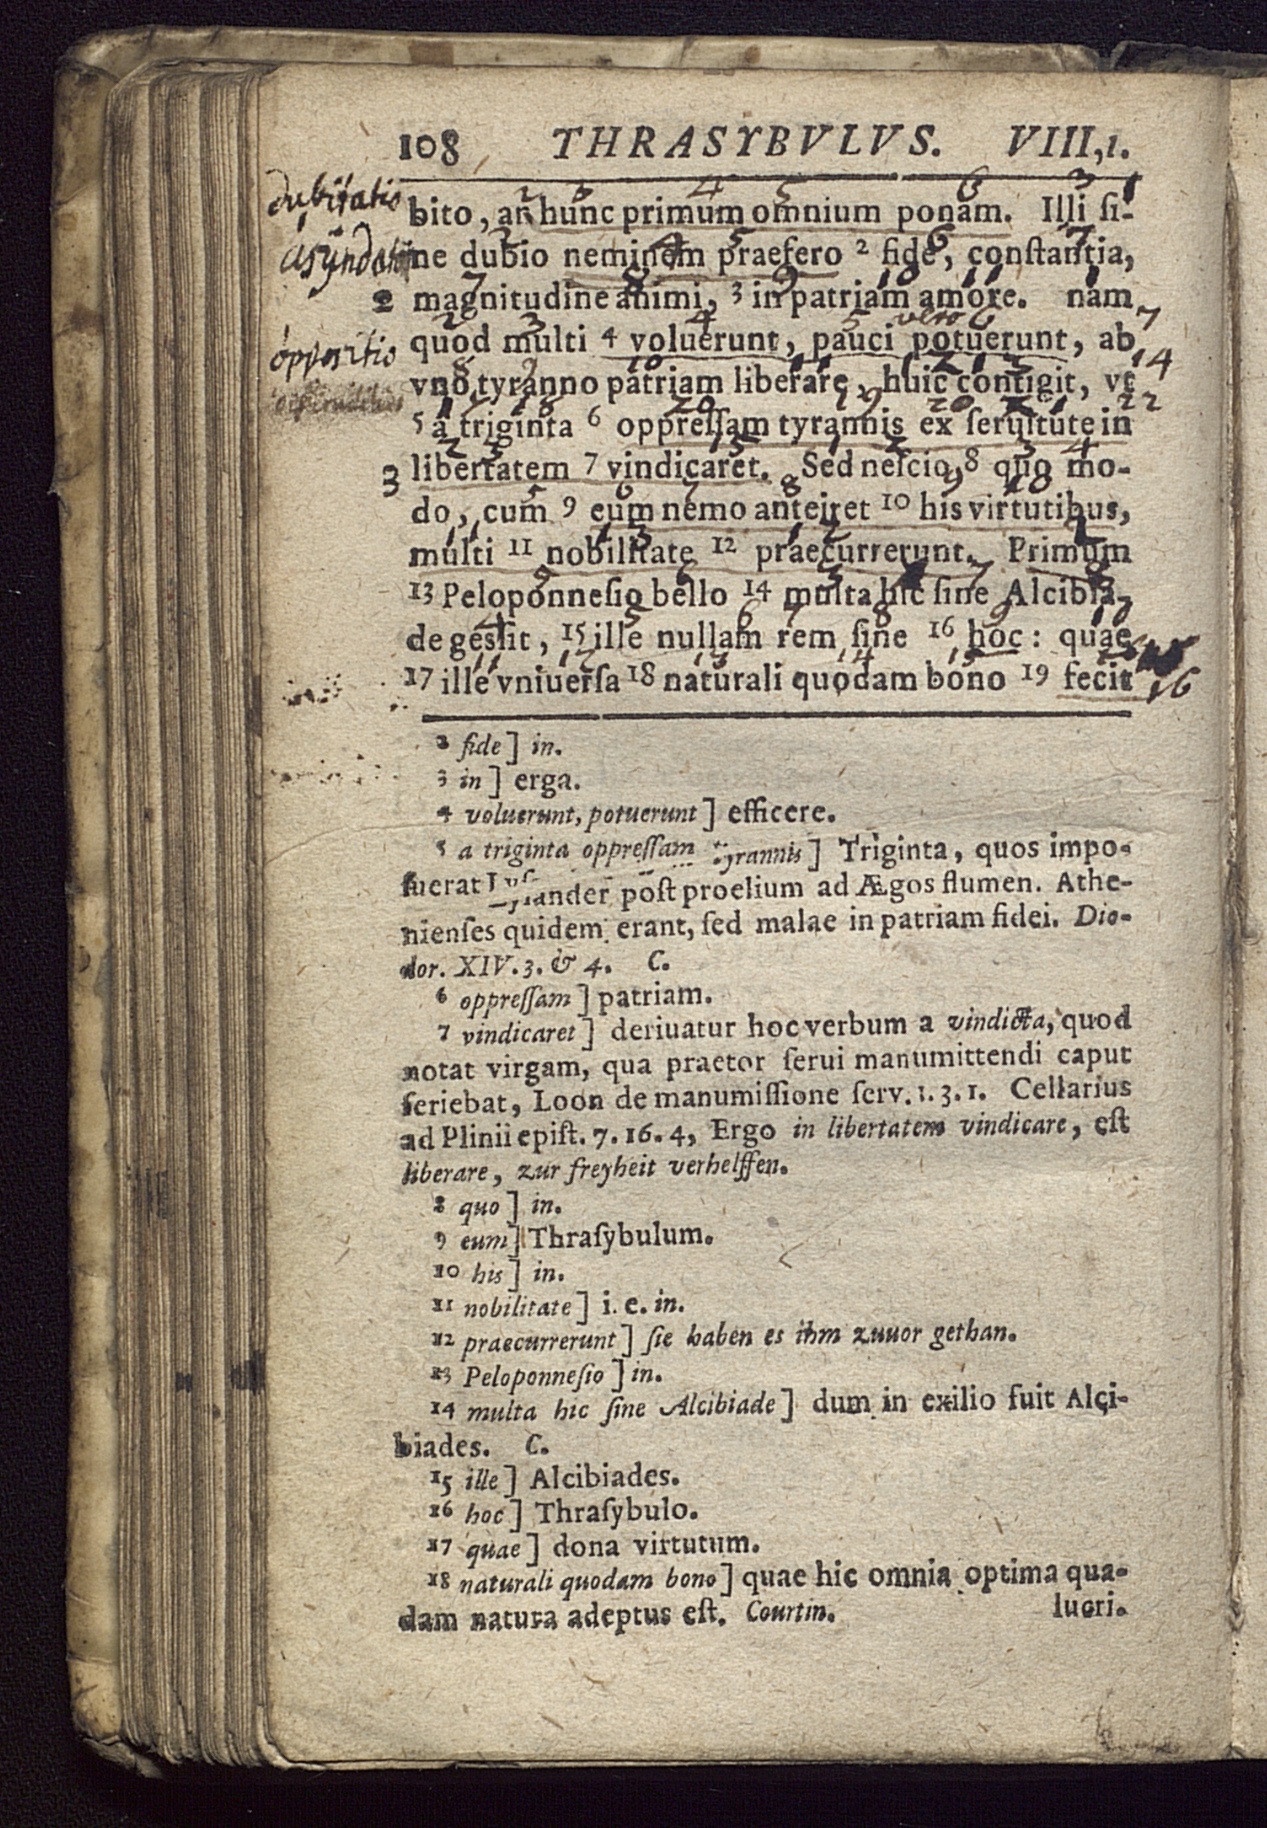 108 THRASYBVLVS. VIII,1.
dubitatio
bito, an hunc primum omnium ponam. Illi ſi-
ne dubio neminem praefero 2 fide, conſtantia,
2 magnitudine animi, 3 in patriam amore. nam
vero
oppositio
quod multi 4 voluerunt, pauci potuerunt, ab
vno tyranno patriam liberare, huic contigit, vt
5 a triginta 6 oppreſſam tyrannis ex ſeruitute in
3 libertatem 7 vindicaret. Sed neſcio, 8 quo mo-
do, cum 9 eum nemo anteiret 10 his virtutibus,
multi 11 nobilitate 12 praecurrerunt. Primum
13 Peloponneſio bello 14 multa hic ſine Alcibia-
de geſſit, 15 ille nullam rem ſine 16 hoc: quae
17 ille vniuerſa 18 naturali quodam bono 19 fecit
2 fide] in.
3 in] erga.
4 voluerunt, potuerunt] efficere.
5 a triginta oppreſſam tyrannis] Triginta, quos impo-
ſuerat Lyſander poſt proelium ad Ægos flumen. Athe-
nienſes quidem erant, ſed malae in patriam fidei. Dio-
dor. XIV. 3. & 4. C.
6 oppreſſam] patriam.
7 vindicaret] deriuatur hoc verbum a vindicta, quod
notat virgam, qua praetor ſerui manumittendi caput
feriebat, Loon de manumiſſione ſerv. 1. 3. 1. Cellarius
ad Plinii epiſt. 7. 16. 4, Ergo in libertatem vindicare, eſt
liberare, zur freyheit verhelffen.
8 quo] in.
9 eum] Thraſybulum.
10 his] in.
11 nobilitate] i. e. in.
12 praecurrerunt] ſie haben es ihm zuuor gethan.
13 Peloponneſio] in.
14 multa hic ſine Alcibiade] dum in exilio fuit Alci-
biades. C.
15 ille] Alcibiades.
16 hoc] Thraſybulo.
17 quae] dona virtutum.
18 naturali quodam bono] quae hic omnia optima qua-
dam natura adeptus eſt. Courtin. lucri.